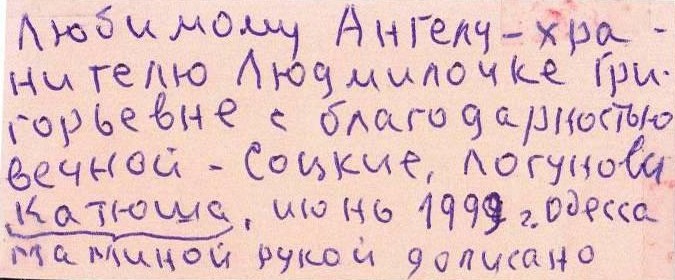 Любимому Ангелу-хра-
нителю Людмилочке Гри-
горьевне с благодарностью
вечной - Соцкие, Логуновы
Катюша, июнь 1999 г. Одесса
маминой рукой дописано